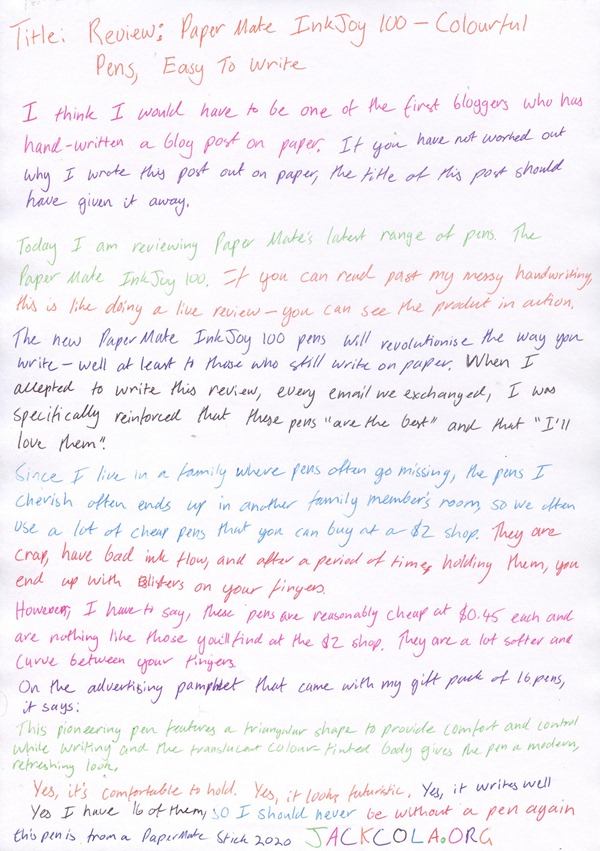 Title: Review: Paper Mate InkJoy 100 - Colourful
Pens, Easy To Write
I think I would have to be one of the first bloggers who has
hand-written a blog post on paper. If you have not worked out
why I wrote this post out on paper, the title of this post should
have given it away.
Today I am reviewing Paper Mate's latest range of pens. The
Paper Mate InkJoy 100. If you can read past my messy handwriting,
this is like doing a live review - you can see the product in action.
The new PaperMate InkJoy 100 pens will revolutionise the way you
write - well at least to those who still write on paper. When I
accepted to write this review, every email we exchanged, I was
specifically reinforced that these pens "are the best" and that "I'll
love them".
Since I live in a family where pens often go missing, the pens I
cherish often ends up in another family member's room, so we often
use a lot of cheap pens that you can buy at a $2 shop. They are
crap, have bad ink flow, and after a period of time, holding them, you
end up with Blisters on your fingers.
However, I have to say, these pens are reasonably cheap at $0.45 each and
are nothing like those you'll find at the $2 shop. They are a lot softer and
curve between your fingers
On the advertising pamphlet that came with my gift pack of 16 pens,
it says:
This pioneering pen features a triangular shape to provide comfort and control
while writing and the translucent colour-tinted body gives the pen a modern,
refreshing look.
Yes, it's comfortable to hold. Yes, it looks futuristic. Yes, it writes well
Yes I have 16 of them, so I should never be without a pen again
this pen is from a PaperMate Stick 2020 JACKCOLA.ORG